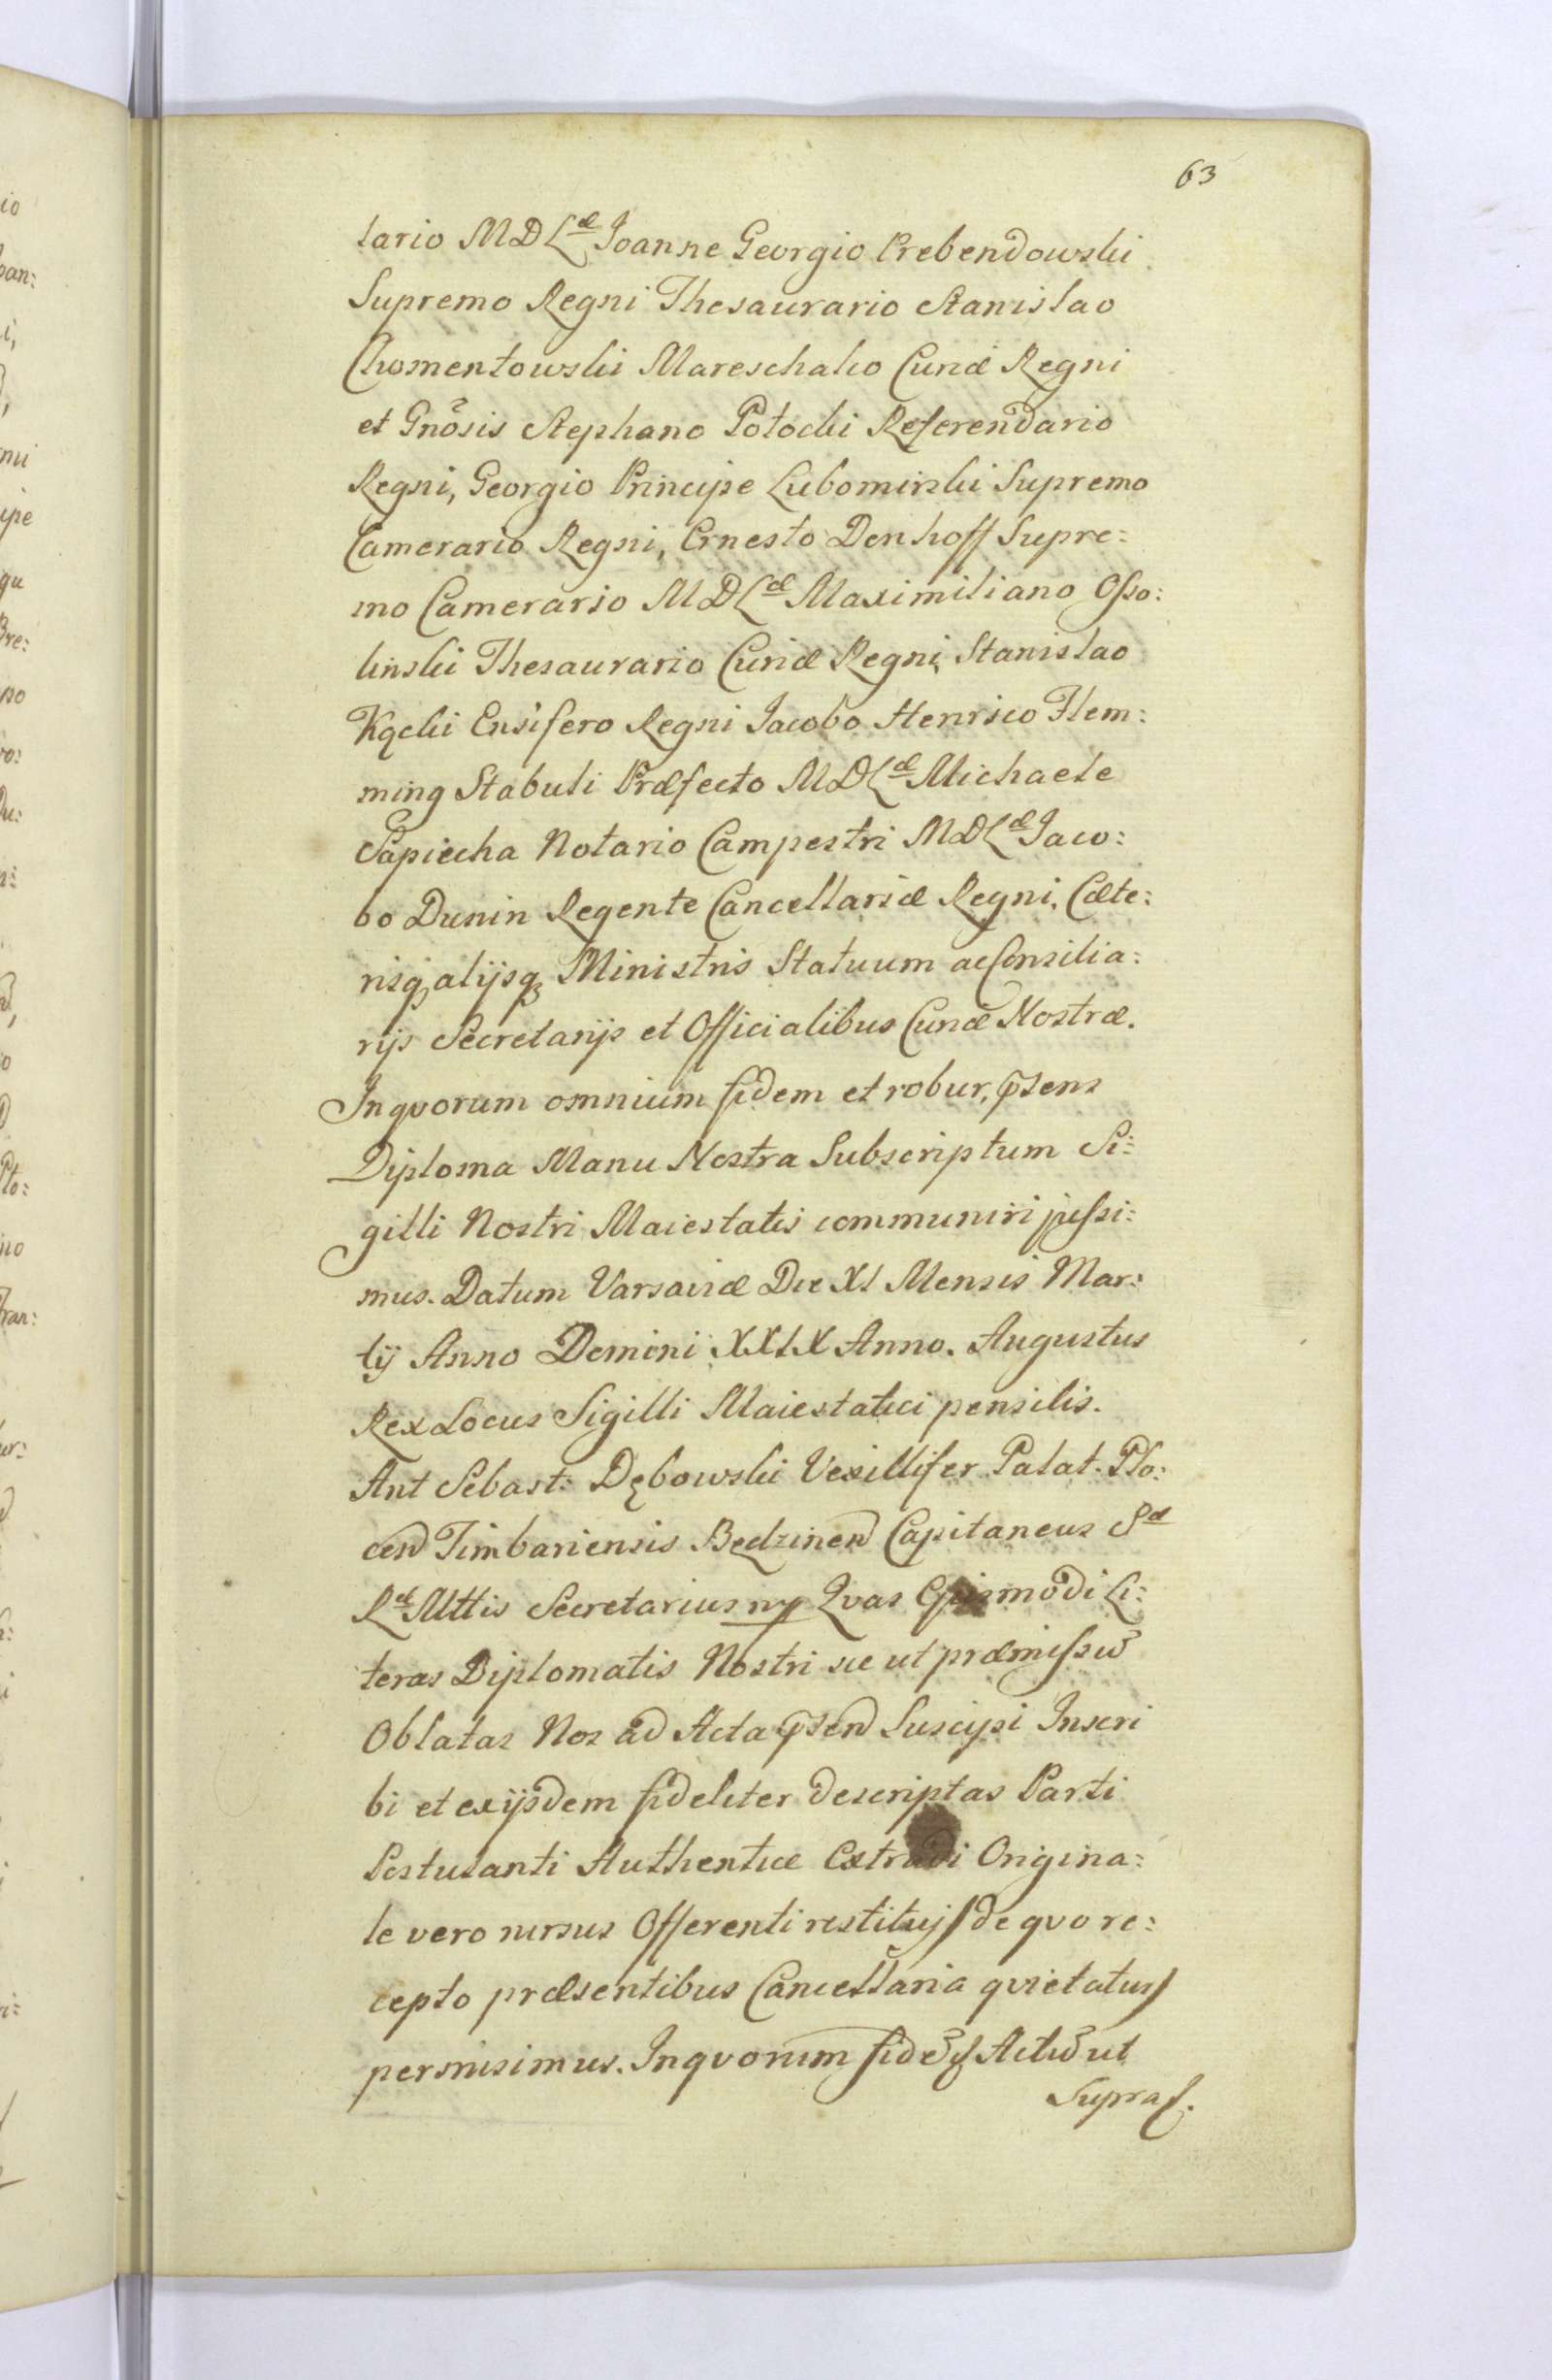 63
tario MDLæ Joanne Georgio Prebendowski
Supremo Regni Thesaurario Stanislao
Chomentowski Mareschalco Curiæ Regni
et Gnõsis Stephano Potocki Referendario
Regni, Georgio Principe Lubomirski Supremo
Camerario Regni, Ernesto Denhoff Supre:
mo Camerario MDLæ Maximiliano Osso:
linski Thesaurario Curiæ Regni, Stanislao
Kącki Ensifero Regni Jacobo Henrico Flem:
ming Stabuli Præfecto MDLæ Michaele
Sapiecha Notario Campestri MDLæ Jaco:
bo Dunin Regente Cancellariæ Regni, Cæte:
risq alijsq Ministris Statuum ac Consilia:
rijs Secretarijs et Officialibus Curiæ Nostræ.
In quorum omnium fidem et robur, p̃sens
Diploma Manu Nostra Subscriptum Si:
gilli Nostri Maiestatis communiri jussi:
mus. Datum Varsaviæ Die XI Mensis Mar:
tij Anno Domini XXIX Anno. Augustus
Rex Locus Sigilli Maiestatici pensilis.
Ant Sebast: Dębowski Vexillifer Palat. Plo:
cen Timbariensis Będzinen Capitaneus Sæ
Ræ Mttis Secretarius mp Qvas Ejusmodi Li:
teras Diplomatis Nostri sic ut præmissũ
Oblatas Nos ad Acta p̃sen Suscipi Inscri
bi et exijsdem fideliter descriptas Parti
Postulanti Authenticæ Extradi Origina:
le vero rursus Offerenti restituj de quo re:
cepto præsentibus Cancellaria quietatur
permisimus. In quorum fidẽ Actũ ut
Supra